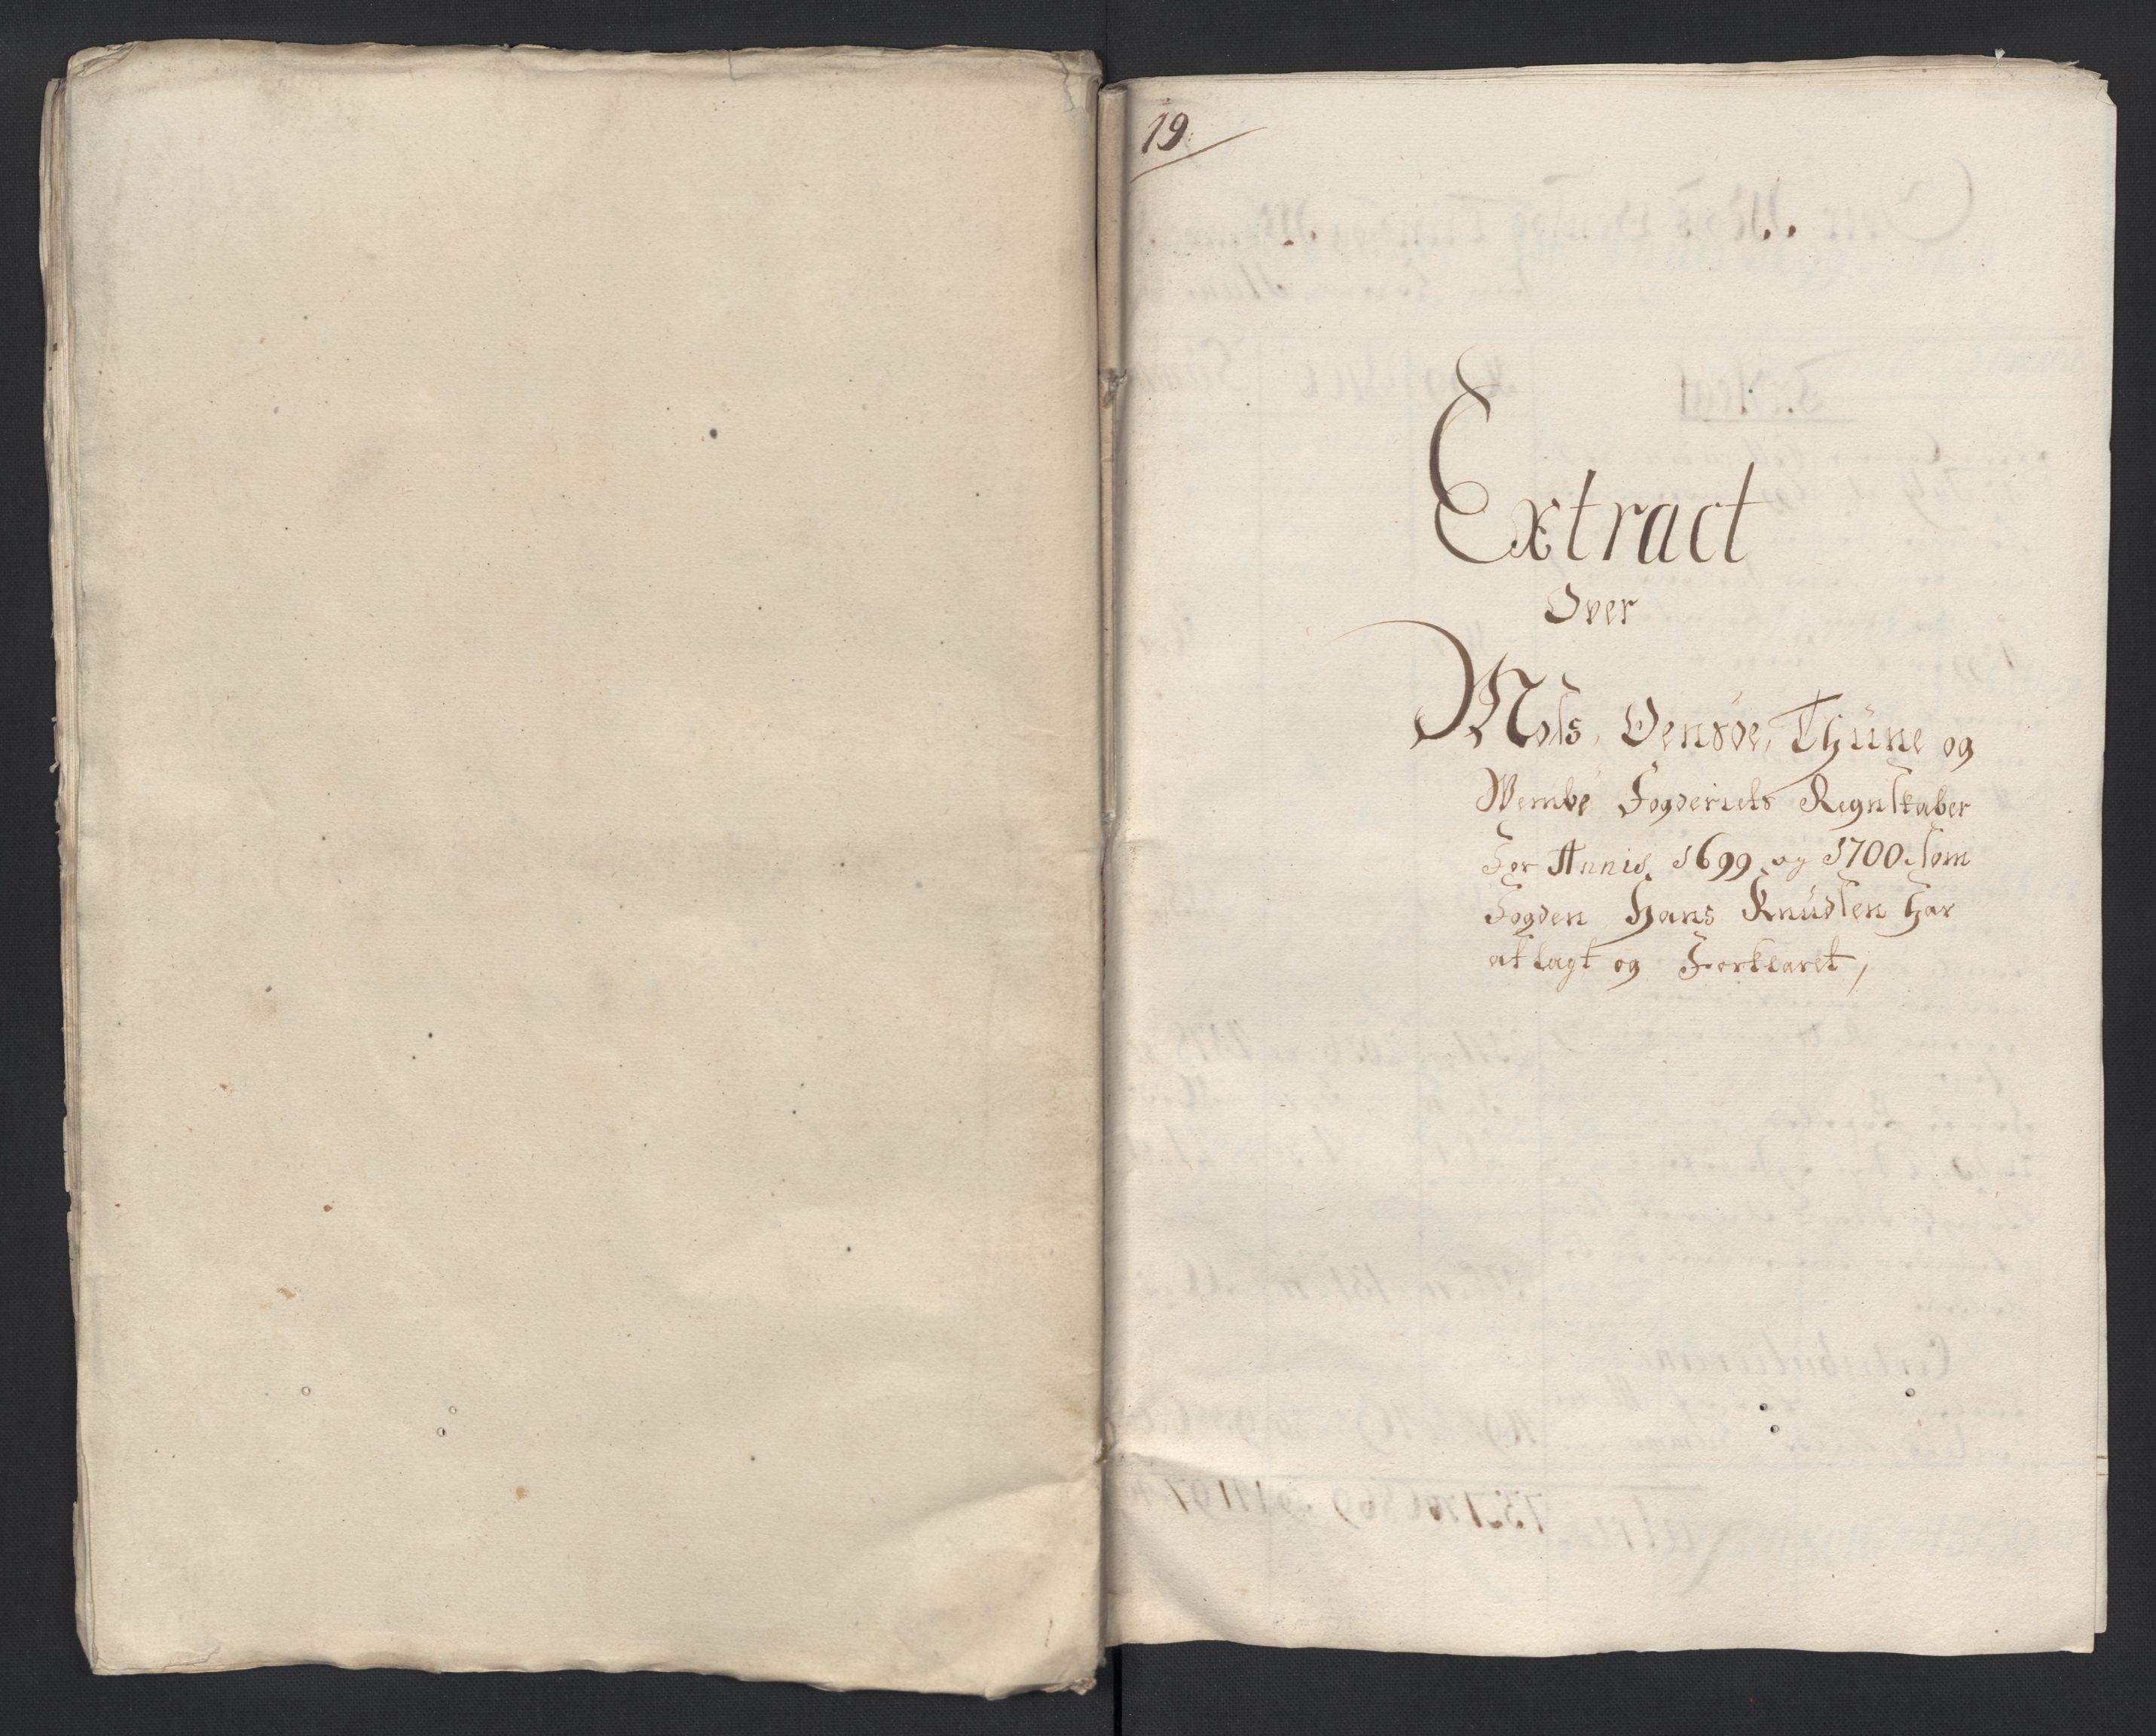 19.
Extract
Over
Mols, Oensøe, Thüne og
Wembe Fogderiets Regnskaber
For Annis 1699 og 1700 som
Fogden Hans Knüdsen har
aflagt og Forklaret,